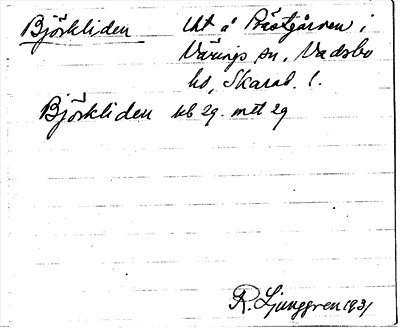 Björkliden Uht å Prästgården i
Värings sn, Vadsbo
hd, Skarab. l.
Björkliden kb 29. mtl 29
R. Ljunggren 1931